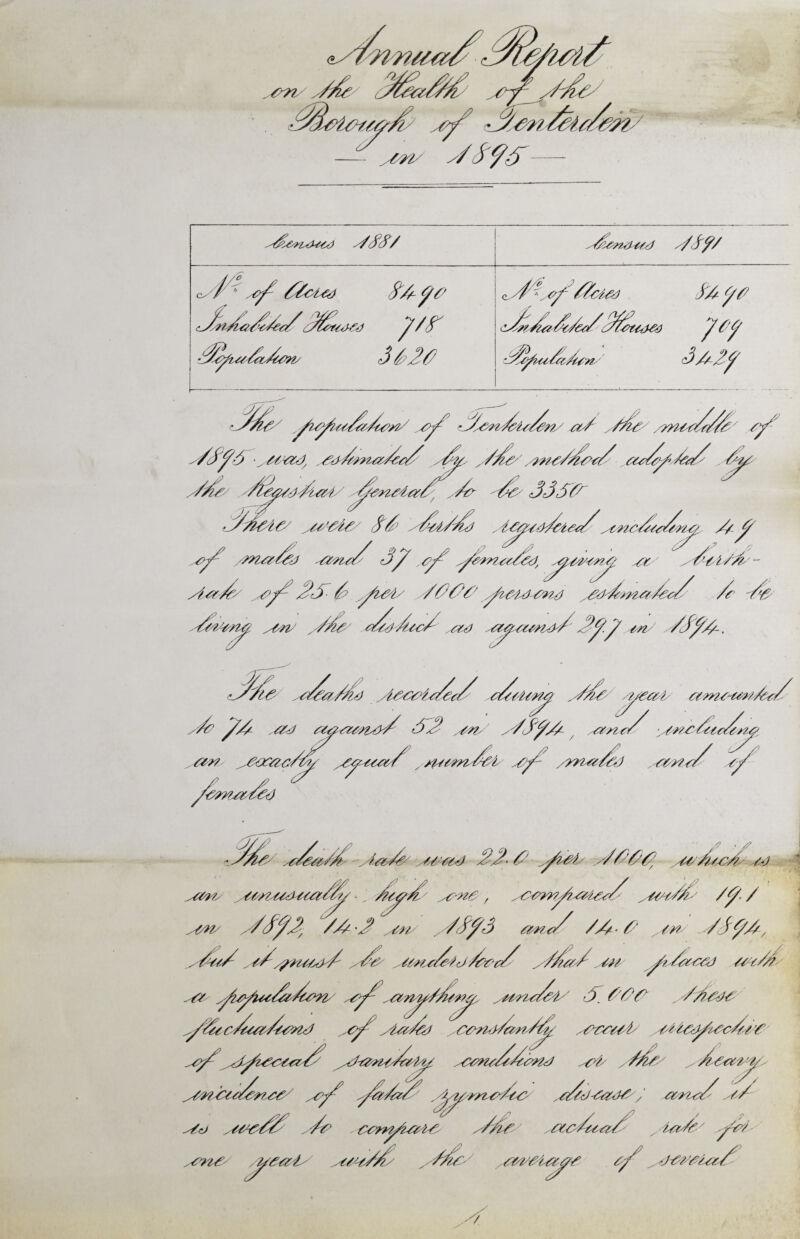 Annual Report
on the Health of the
Borough of Tenterden
— in 1895 —
Census 1881 Census 1891
No. of Acres 8490 No. of Acres 8490
Inhabited Houses 718 Inhabited Houses 709
Population 3620 Population 3429
The population of Tenterden at the middle of
1895 was, estimated by the method adopted by
the Registrar General, to be 3350
There were 86 births registered including 49
of males and 37 of females, giving a birth-
rate of 25.6 per 1000 persons estimated to be
living in the district as against 29.7 in 1894.
The deaths recorded during the year amounted
to 74 as against 52 in 1894, and including
an exactly equal number of males and of
females
The death-rate was 22.0 per 1000, which is
an unusually high one, compared with 19.1
in 1892, 14.2 in 1893 and 14.0 in 1894,
but it must be understood that in places with
a population of anything under 5.000 these
fluctuations of rates constantly occur irrespective
of special sanitary conditions or the heavy
incidence of fatal zymotic disease; and it
is well to compare the actual rate for
one year with the average of several
1